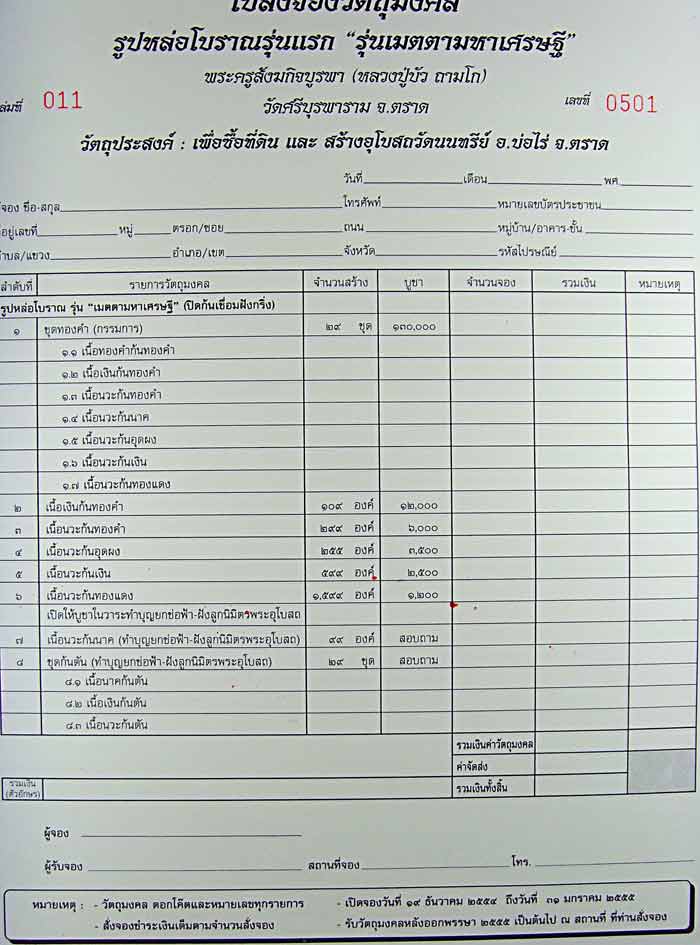 ใบสั่งจองวัตถุมงคล
รูปหล่อโบราณรุ่นแรก “รุ่นเมตตามหาเศรษฐี”
พระครูสังฆกิจบูรพา (หลวงปู่บัว ถามโก)
เล่มที่ 011 วัดศรีบุรพาราม จ.ตราด เลขที่ 0501
วัตถุประสงค์ : เพื่อซื้อที่ดิน และ สร้างอุโบสถวัดนนทรีย์ อ.บ่อไร่ จ.ตราด
วันที่ เดือน พศ.
ผู้จอง ชื่อ-สกุล โทรศัพท์ หมายเลขบัตรประชาชน
ที่อยู่เลขที่ หมู่ ตรอก/ซอย ถนน หมู่บ้าน/อาคาร-ชั้น
ตำบล/แขวง อำเภอ/เขต จังหวัด รหัสไปรษณีย์
ลำดับที่ รายการวัตถุมงคล จำนวนสร้าง บูชา จำนวนจอง รวมเงิน หมายเหตุ
รูปหล่อโบราณ รุ่น “เมตตามหาเศรษฐี” (ปิดก้นเชื่อมฝังกริ่ง)
๑ ชุดทองคำ (กรรมการ) ๒๙ ชุด ๑๓๐,๐๐๐
๑.๑ เนื้อทองคำก้นทองคำ
๑.๒ เนื้อเงินก้นทองคำ
๑.๓ เนื้อนวะก้นทองคำ
๑.๔ เนื้อนวะก้นนาค
๑.๕ เนื้อนวะก้นอุดผง
๑.๖ เนื้อนวะก้นเงิน
๑.๗ เนื้อนวะก้นทองแดง
๒ เนื้อเงินก้นทองคำ ๑๐๙ องค์ ๑๒,๐๐๐
๓ เนื้อนวะก้นทองคำ ๒๙๙ องค์ ๖,๐๐๐
๔ เนื้อนวะก้นอุดผง ๒๕๕ องค์ ๓,๕๐๐
๕ เนื้อนวะก้นเงิน ๕๙๙ องค์ ๒,๕๐๐
๖ เนื้อนวะก้นทองแดง ๑,๕๙๙ องค์ ๑,๒๐๐
เปิดให้บูชาในวาระทำบุญยกช่อฟ้า-ฝังลูกนิมิตรพระอุโบสถ
๗ เนื้อนวะก้นนาค (ทำบุญยกช่อฟ้า-ฝังลูกนิมิตรพระอุโบสถ) ๙๙ องค์ สอบถาม
๘ ชุดก้นตัน (ทำบุญยกช่อฟ้า-ฝังลูกนิมิตรพระอุโบสถ) ๒๙ ชุด สอบถาม
๘.๑ เนื้อนาคก้นตัน
๘.๒ เนื้อเงินก้นตัน
๘.๓ เนื้อนวะก้นตัน
รวมเงินค่าวัตถุมงคล
ค่าจัดส่ง
รวมเงิน (ตัวอักษร) รวมเงินทั้งสิ้น
ผู้จอง
ผู้รับจอง สถานที่จอง โทร.
หมายเหตุ : - วัตถุมงคล ตอกโค๊ตและหมายเลขทุกรายการ - เปิดจองวันที่ ๑๙ ธันวาคม ๒๕๕๔ ถึงวันที่ ๓๑ มกราคม ๒๕๕๕
- สั่งจองชำระเงินเต็มตามจำนวนสั่งจอง - รับวัตถุมงคลหลังออกพรรษา ๒๕๕๕ เป็นต้นไป ณ สถานที่ ที่ท่านสั่งจอง